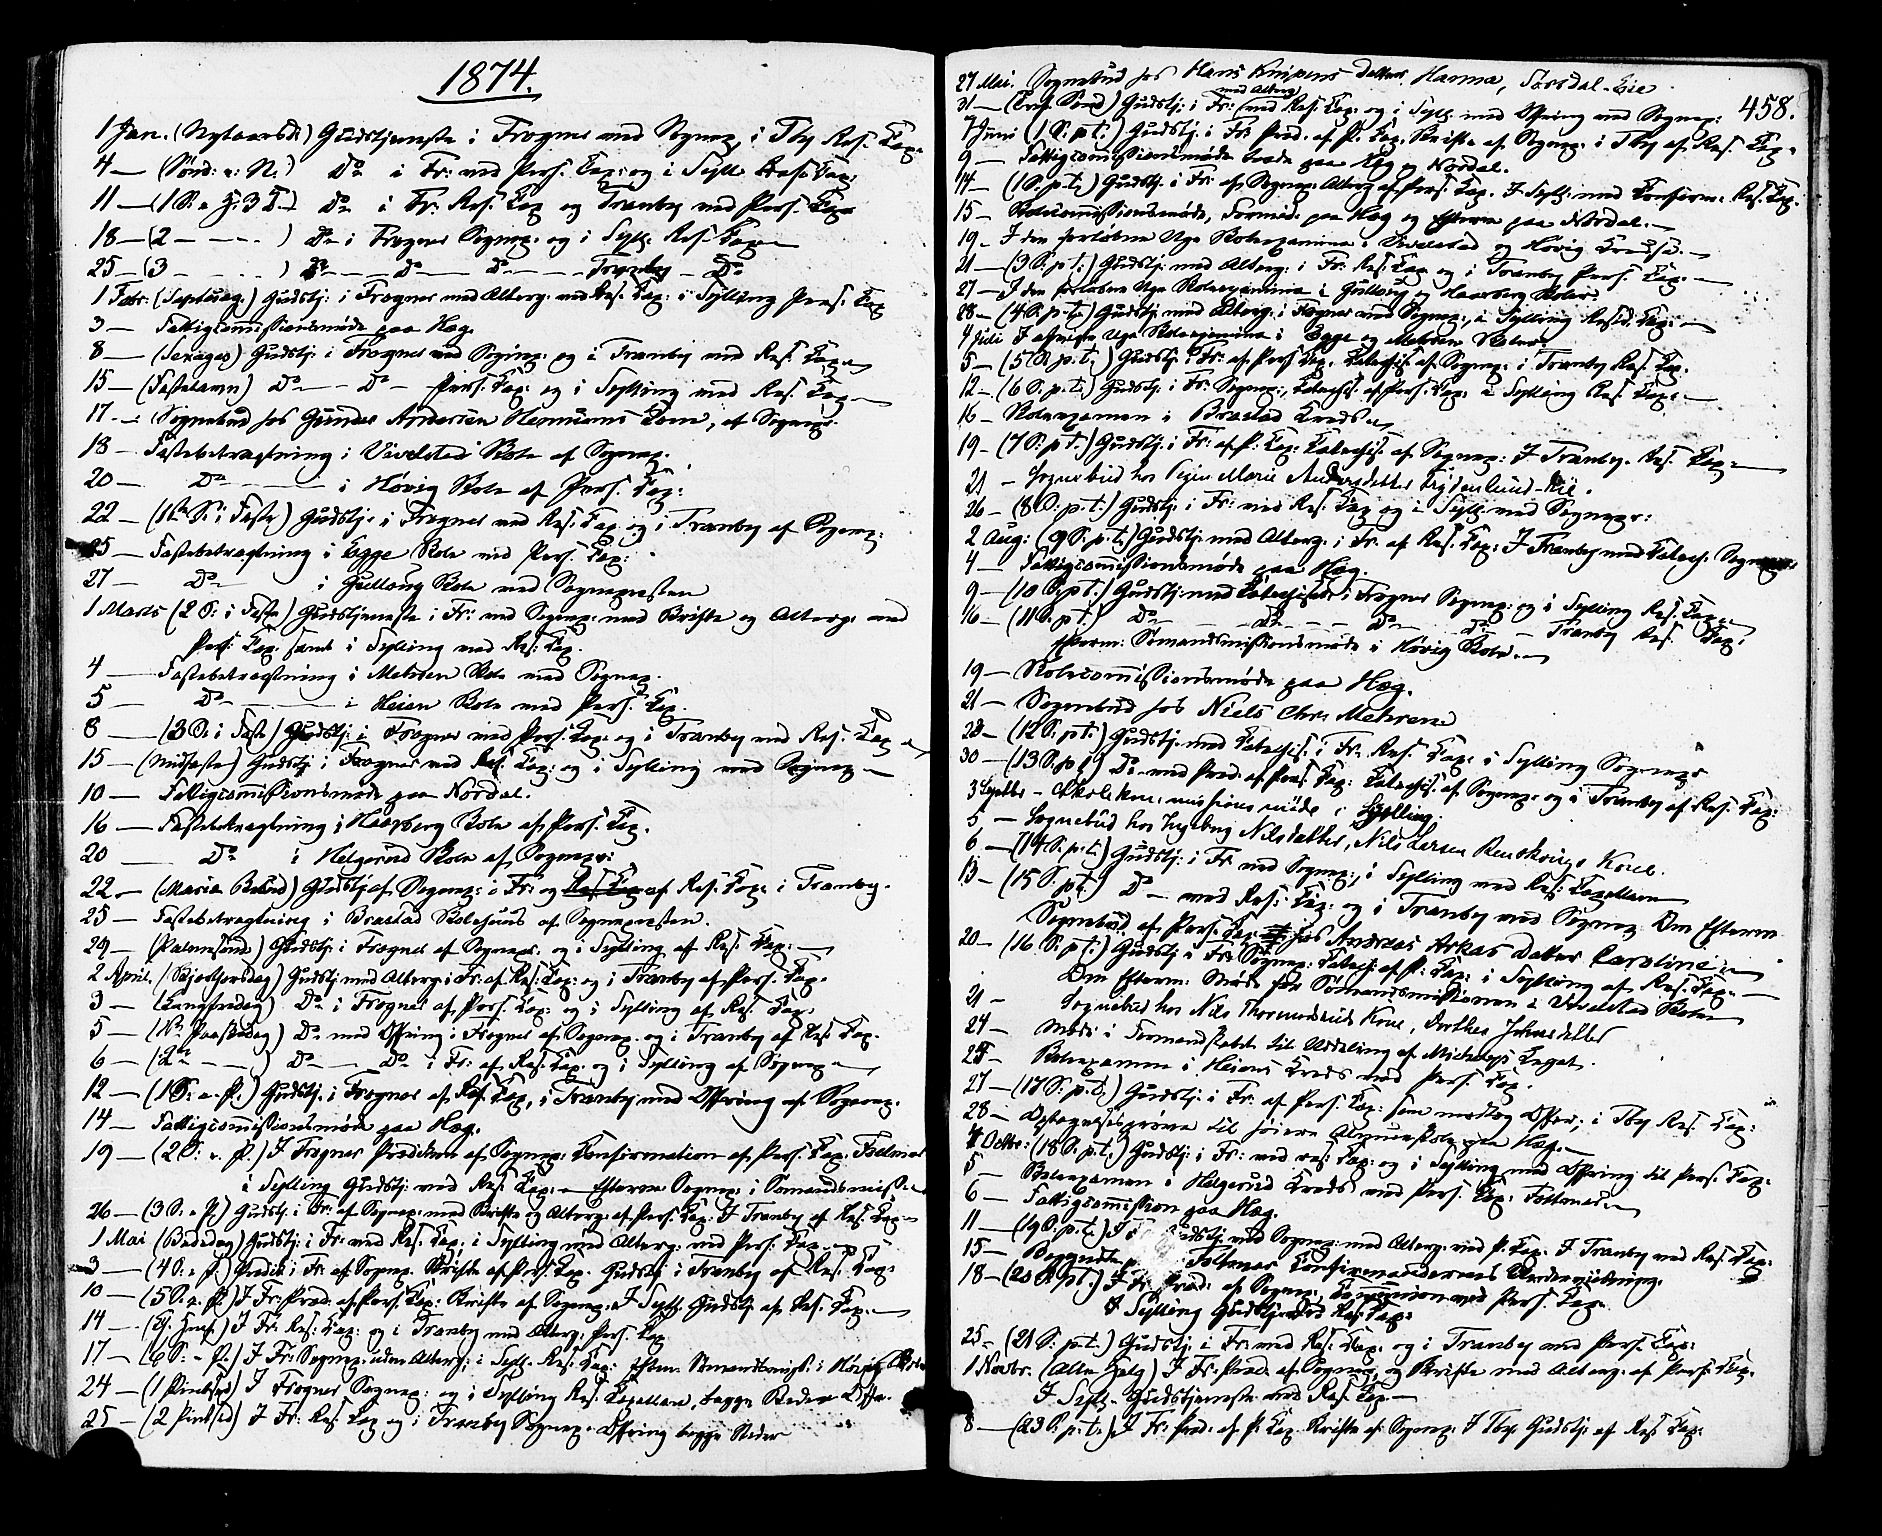 1874.
1 Jan. (Nytaarsd.) Gudstjeneste i Frogner med Sognep. i Tby Res. Cap.
4 — (Sønd: e: N.) Do i Fr: med Pers. Cap: og i Syll. Res. Cap:
11 — (1 S: e H. 3 K.) Do i Fr: Res. Cap og Tranby med Pers. Cap.
18 — (2 - - - - ) Do i Frogner Sognep: og i Syll: Res. Cap.
25 — (3 - - - - ) Do — Do — Do — Tranby — Do
1 Febr: (Septuag.) Gudstj: i Frogner med Alterg: med Res. Cap: i Sylling Pers. Cap
3 — Fattigcommissionsmøde paa Hæg.
8 — (Sexages) Gudstj: i Frogner med Sognep: og i Tranby med Res. Cap.
15 — (Fastelavn) Do — Do — Pers. Cap: og i Sylling med Res. Cap.
17 — Sognebud hos Gunder Andersen Kone, af Sognep.
18 — Fastebetragtning i Vivelstad Skole af Sognep.
20 — Do — i Høvig Skole af Pers. Cap:
22 — (1ste S: i Faste) Gudstj: i Frogner med Res. Cap og i Tranby af Sognep:
25 — Fastebetragtning i Egge Skole med Pers. Cap:
27 — Do — i Gullaug Skole med Sognepresten
1 Marts (2 S: i Faste) Gudstjeneste i Fr: med Sognep: med Skrifte og Alterg: med
Pers. Cap: samt i Sylling med Res. Cap.
4 — Fastebetragtning i Mehren Skole med Sognep.
5 — Do — i Heien Skole med Pers. Cap.
8 — (3 S: i Faste) Gudstj: i Frogner med Pers. Cap: og i Tranby med Res. Cap
15 — (Midfaste) Gudstj: i Frogner med Res. Cap: og i Sylling med Sognep
10 — Fattigcommissionsmøde paa Nordal.
16 — Fastebetragtning i Haarberg Skole af Pers. Cap.
20 — Do i Helgerud Skole af Sognepr:
22 — (Maria Beb:) Gudstj af Sognep: i Fr: og Res. Cap af Res. Cap: i Tranby.
25 — Fastebetragtning i Brastad Skolehuus af Sognepresten.
29 — (Palmesønd.) Gudstj: i Frogner af Sognepr. og i Sylling af Res. Cap:
2 April (Skjærthorsdag) Gudstj med Alterg: i Fr: af Res. Cap: og i Tranby af Pers. Cap.
3 — (Langfredag) Do i Frogner af Pers. Cap: og i Sylling af Res. Cap.
5 — (1ste Paaskedag) Do med Offring i Frogner af Sognep. og i Tranby af Res. Cap.
6 — (2den — ) Do — Do i Fr: af Res. Cap. og i Sylling af Sognep
12 — (1 S: e. P.) Gudstj: i Frogner af Res. Cap, i Tranby med Offring af Sognep.
14 — Fattigcommissionsmøde paa Hæg.
19 — (2 S: e. P.) I Frogner Prædiken af Sognep: Confirmation af Pers. Cap: Follmar
i Sylling Gudstj: med Res. Cap: — Efterm Sognep: i Sømandsmiss.
26 — (3 S: e P.) Gudstj: i Fr: af Sognep: med Skrifte og Alterg: af Pers. Cap: I Tranby af Res. Cap
1 Mai (Bededag) Gudstj: i Fr: med Res. Cap, i Sylling med Alterg: med Pers. Cap
3 — (4 S: e P.) Prædik: i Fr: af Sognep. Skrifte af Pers. Cap. Gudstj: i Tranby af Res. Cap.
10 — (5 S. e. P.) I Fr: Præd: af Pers. Cap: Skrifte af Sognep. I Syll: Gudstj: af Res. Cap.
14 — (Chr. Himf.) I Fr. Res. Cap: og i Tranby med Alterg: Pers. Cap
17 — (6 S: e P.) I Fr: Sognep: uden Alterg: i Syll. Res. Cap: Efterm. Sømandsmiss: i Høvig Skole
24 — (1 Pindsed) I Frogner Sognep: og i Sylling Res. Capellan, begge Steder Offr.
25 — (2 Pindsed) I Fr: Res. Cap og i Tranby Sognep. Offring begge Steder
458.
27 Mai. Sognebud hos Hans Knipens Datter Hanna, Sørsdal-Eie.
31 — (Tref. Sønd) Gudstj: i Fr: (med Alterg) med Res. Cap: og i Syll: med Offring med Sognep:
7 Juni (1 S: p t:) Gudstj: i Fr: Præd. af P. Cap. Skrifte af Sognep: i Tby af Res. Cap.
9 — Fattigcommissionsmøde baade paa Hæg og Nordal.
14 — (1 S. p. t.) Gudstj: i Fr: af Sognep: Alterg af Pers. Cap. I Syll: med Confirm: Res. Cap.
15 — Skolecommissionsmøde, Formid: paa Hæg og Efterm paa Nordal.
19 — I den forløbne Uge Skoleexamina i Vivelstad og Høvig Kredse.
21 — (3 S: p t:) Gudstj: med Alterg: i Fr: Res. Cap og i Tranby Pers. Cap:
27 — I den forløbne Uge Skoleexamina i Gullaug og Haarberg Skoler
28 — (4 S. p. t.) Gudstj: med Alterg. i Frogner med Sognep: i Sylling Resid. Cap:
4 Juli I Uge Skoleexamina i Egge og Mehren Skoler
5 — (5 S. p. t.) Gudstj: i Fr: af Pers Cap, Catechis. af Sognep: i Tranby Res. Cap.
12 — (6 S. p. t.) Gudstj: i Fr: Sognep:, Catechis: af Pers. Cap: i Sylling Res. Cap:
16 — Skoleexamen i Brastad Kreds
19 — (7 S: p t.) Gudstj: i Fr: af P. Cap: Catechis: af Sognep: I Tranby Res. Cap:
21 — Sognebud hos Pigen Marie Andersdatter Eie.
26 — (8 S: p. t.) Gudstj: i Fr: med Res. Cap og i Syll: med Sognepr:
2 Aug: (9 S: p. t.) Gudstj: med Alterg. i Fr. af Res. Cap: I Tranby med Catech. Sognepr:
4 — Fattigcommissionsmøde paa Hæg.
9 — (10 S: p t.) Gudstj: med Catechis. i Frogner Sognep: og i Sylling Res. Cap.
16 — (11 S: p t.) Do — Do — Do — Do — Tranby Res. Cap.
Efterm: Sømandsmissionsmøde i Høvig Skole.
19 — Skolecommissionsmøde paa Hæg.
21 — Sognebud hos Niels Chr. Mehren
23 — (12 S: p t.) Gudstj: med Catechis: i Fr: Res. Cap: i Sylling Sognepr
30 — (13 S. p t) Do — med Præd. af Pers Cap: Catechis: af Sognep: og i Tranby af Res. Cap:
3 Septbr — Skolekommissionsmøde i Sylling.
5 — Sognebud hos Ingeborg Nilsdatter, Nils Larsen Kone.
6 — (14 S: p. t.) Gudstj: i Fr: med Sognep:, i Sylling med Res. Capellan
13 — (15 S: p t.) Do — med Res. Cap: og i Tranby med Sognep Om Efterm
Sognebud af Pers. Cap: hos Andreas Askas Datter Caroline
20 — (16 S. p. t.) Gudstj: i Fr: Sognep: Catech: af P. Cap: i Sylling af Res. Cap:
Om Efterm: Møde for Sømandsmissionen i Vivelstad Skole
21 — Sognebud hos Nils Thormodsruds Kone, Dorthea Johnsdatter
24 — Møde i Formandskabet til Uddeling af Michelsens Legat.
25 — Skoleexamen i Heiens Kreds med Pers. Cap.
27 — (17 S: p. t.) Gudstj: i Fr: af Pers. Cap: som modtog Offer; i Tby Res. Cap:
28 — Optagelsesprøve til høiere Almueskole paa Hæg.
4 Octbr: (18 S. p. t.) Gudstj: i Fr: med Res: Cap: og i Sylling med Offring til Pers. Cap:
5 — Skoleexamen i Helgerud Kreds med Pers. Cap: Follmar.
6 — Fattigcommission paa Hæg.
11 — (19 S: p. t.) I Gudstj: med Sognep: med Alterg: med P. Cap: I Tranby med Res. Cap:
15 — Begyndte Follmar Confirmandernes Underviisning.
18 — (20 S. p t.) I Fr: Præd: af Sognep: Communion med Pers. Cap.
I Sylling Gudstjen med Res. Cap:
25 — (21 S: p. t.) Gudstj: i Fr med Res. Cap: og i Tranby med Pers. Cap:
1 Novbr. (Alle Helg) I Fr: Præd: af Sognep, og Skrifte med Alterg: af Pers. Cap.
I Syll: Gudstjeneste med Res. Cap.
8 — (23 S. p. t.) I Fr: Præd. af P. Cap. Skrifte af Sognep: I Tby Gudstj: af Res. Cap: